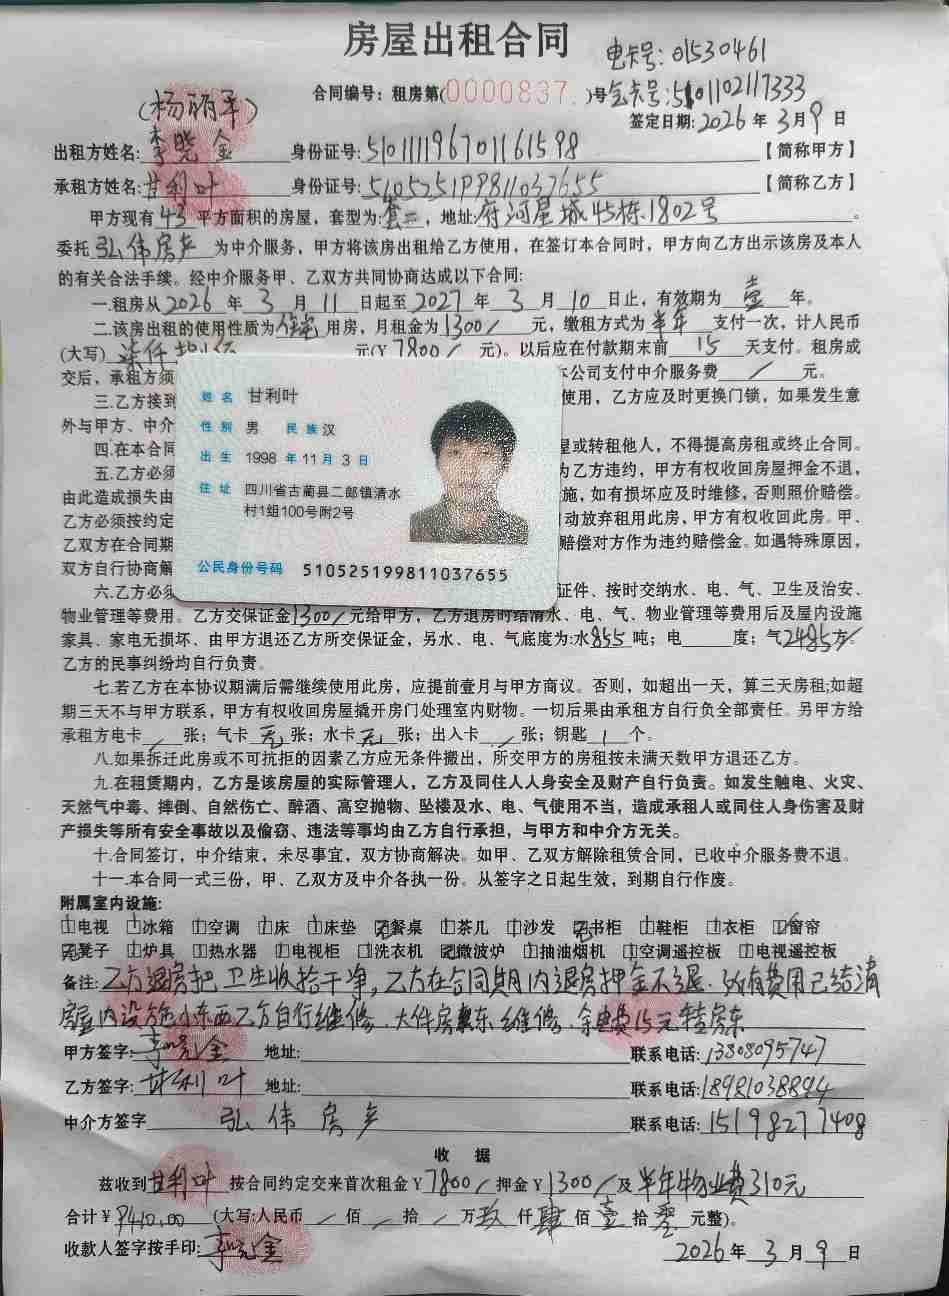 房屋出租合同
电卡号:01530461
合同编号:租房第(0000837.)号 气卡号:5101102117333
签定日期:2026年3月9日
(杨丽平)
出租方姓名:李晓金 身份证号:510111196701161598 【简称甲方】
承租方姓名:甘利叶 身份证号:510525199811037655 【简称乙方】
甲方现有43平方面积的房屋,套型为:套二,地址:府河星城45栋1802号。
委托弘伟房产为中介服务,甲方将该房出租给乙方使用,在签订本合同时,甲方向乙方出示该房及本人
的有关合法手续。经中介服务甲、乙双方共同协商达成以下合同:
一.租房从2026年3月11日起至2027年3月10日止,有效期为壹年。
二.该房出租的使用性质为住宅用房,月租金为1300/元,缴租方式为半年支付一次,计人民币
(大写)柒仟捌佰元(¥7800/元)。以后应在付款期末前15天支付。租房成
交后,承租方须 本公司支付中介服务费/元。
三.乙方接到 使用,乙方应及时更换门锁,如果发生意
外与甲方、中介
四.在本合同 屋或转租他人,不得提高房租或终止合同。
五.乙方必须 为乙方违约,甲方有权收回房屋押金不退,
由此造成损失由 施,如有损坏应及时维修,否则照价赔偿。
乙方必须按约定 动放弃租用此房,甲方有权收回此房。甲、
乙双方在合同期 赔偿对方作为违约赔偿金。如遇特殊原因,
双方自行协商解
姓名 甘利叶
性别 男 民族 汉
出生 1998年11月3日
住址 四川省古蔺县二郎镇清水
村1组100号附2号
公民身份号码 510525199811037655
六.乙方必须 证件、按时交纳水、电、气、卫生及治安、
物业管理等费用。乙方交保证金1300/元给甲方,乙方退房时结清水、电、气、物业管理等费用后及屋内设施
家具、家电无损坏、由甲方退还乙方所交保证金,另水、电、气底度为:水855吨;电 度;气2485方。
乙方的民事纠纷均自行负责。
七.若乙方在本协议期满后需继续使用此房,应提前壹月与甲方商议。否则,如超出一天,算三天房租;如超
期三天不与甲方联系,甲方有权收回房屋撬开房门处理室内财物。一切后果由承租方自行负全部责任。另甲方给
承租方电卡/张;气卡无张;水卡无张;出入卡/张;钥匙1个。
八.如果拆迁此房或不可抗拒的因素乙方应无条件搬出,所交甲方的房租按未满天数甲方退还乙方。
九.在租赁期内,乙方是该房屋的实际管理人,乙方及同住人人身安全及财产自行负责。如发生触电、火灾、
天然气中毒、摔倒、自然伤亡、醉酒、高空抛物、坠楼及水、电、气使用不当,造成承租人或同住人身伤害及财
产损失等所有安全事故以及偷窃、违法等事均由乙方自行承担,与甲方和中介方无关。
十.合同签订,中介结束,未尽事宜,双方协商解决。如甲、乙双方解除租赁合同,已收中介服务费不退。
十一.本合同一式三份,甲、乙双方及中介各执一份。从签字之日起生效,到期自行作废。
附属室内设施:
电视 冰箱 空调 床 床垫 餐桌 茶几 沙发 书柜 鞋柜 衣柜 窗帘
凳子 炉具 热水器 电视柜 洗衣机 微波炉 抽油烟机 空调遥控板 电视遥控板
备注:乙方退房把卫生收拾干净,乙方在合同期内退房押金不退.所有费用已结清
房屋内设施小东西乙方自行维修.大件房东维修.余电费15元转房东
甲方签字:李晓金 地址: 联系电话:13808095747
乙方签字:甘利叶 地址: 联系电话:18981038894
中介方签字 弘伟房产 联系电话:15198277408
收据
兹收到甘利叶按合同约定交来首次租金¥7800/押金¥1300/及半年物业费310元
合计¥9410.00(大写:人民币/佰/拾/万玖仟肆佰壹拾零元整)。
收款人签字按手印:李晓金 2026年3月9日